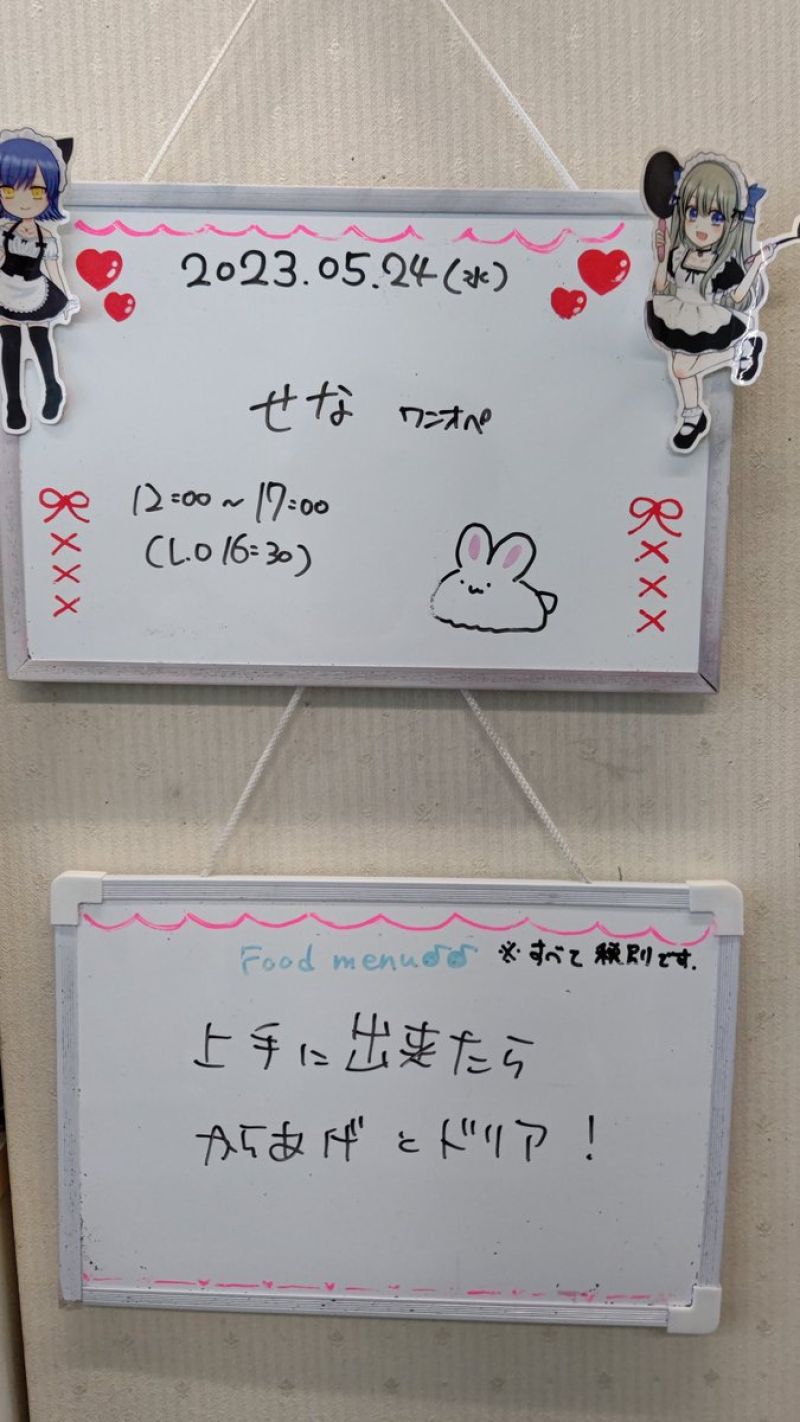 2023.05.24(水)
せな ワンオペ
12:00～17:00
(L.O 16:30)
Food menu♪♪ ※すべて税別です.
上手に出来たら
からあげとドリア!